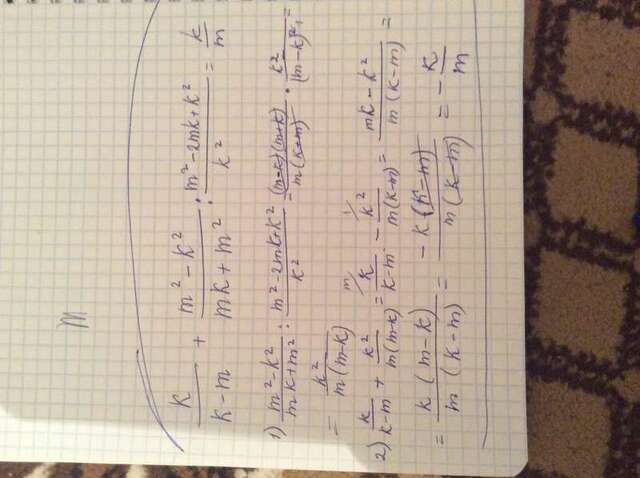 m
k/(k-m) + (m²-k²)/(mk+m²) : (m²-2mk+k²)/k² = k/m
1) (m²-k²)/(mk+m²) : (m²-2mk+k²)/k² = ((m-k)(m+k))/(m(k+m)) · k²/(m-k)² =
= k²/(m(m-k))
2) k/(k-m) + k²/(m(m-k)) = k/(k-m) - k²/(m(k-m)) = (mk-k²)/(m(k-m)) =
= (k(m-k))/(m(k-m)) = (-k(k-m))/(m(k-m)) = -k/m